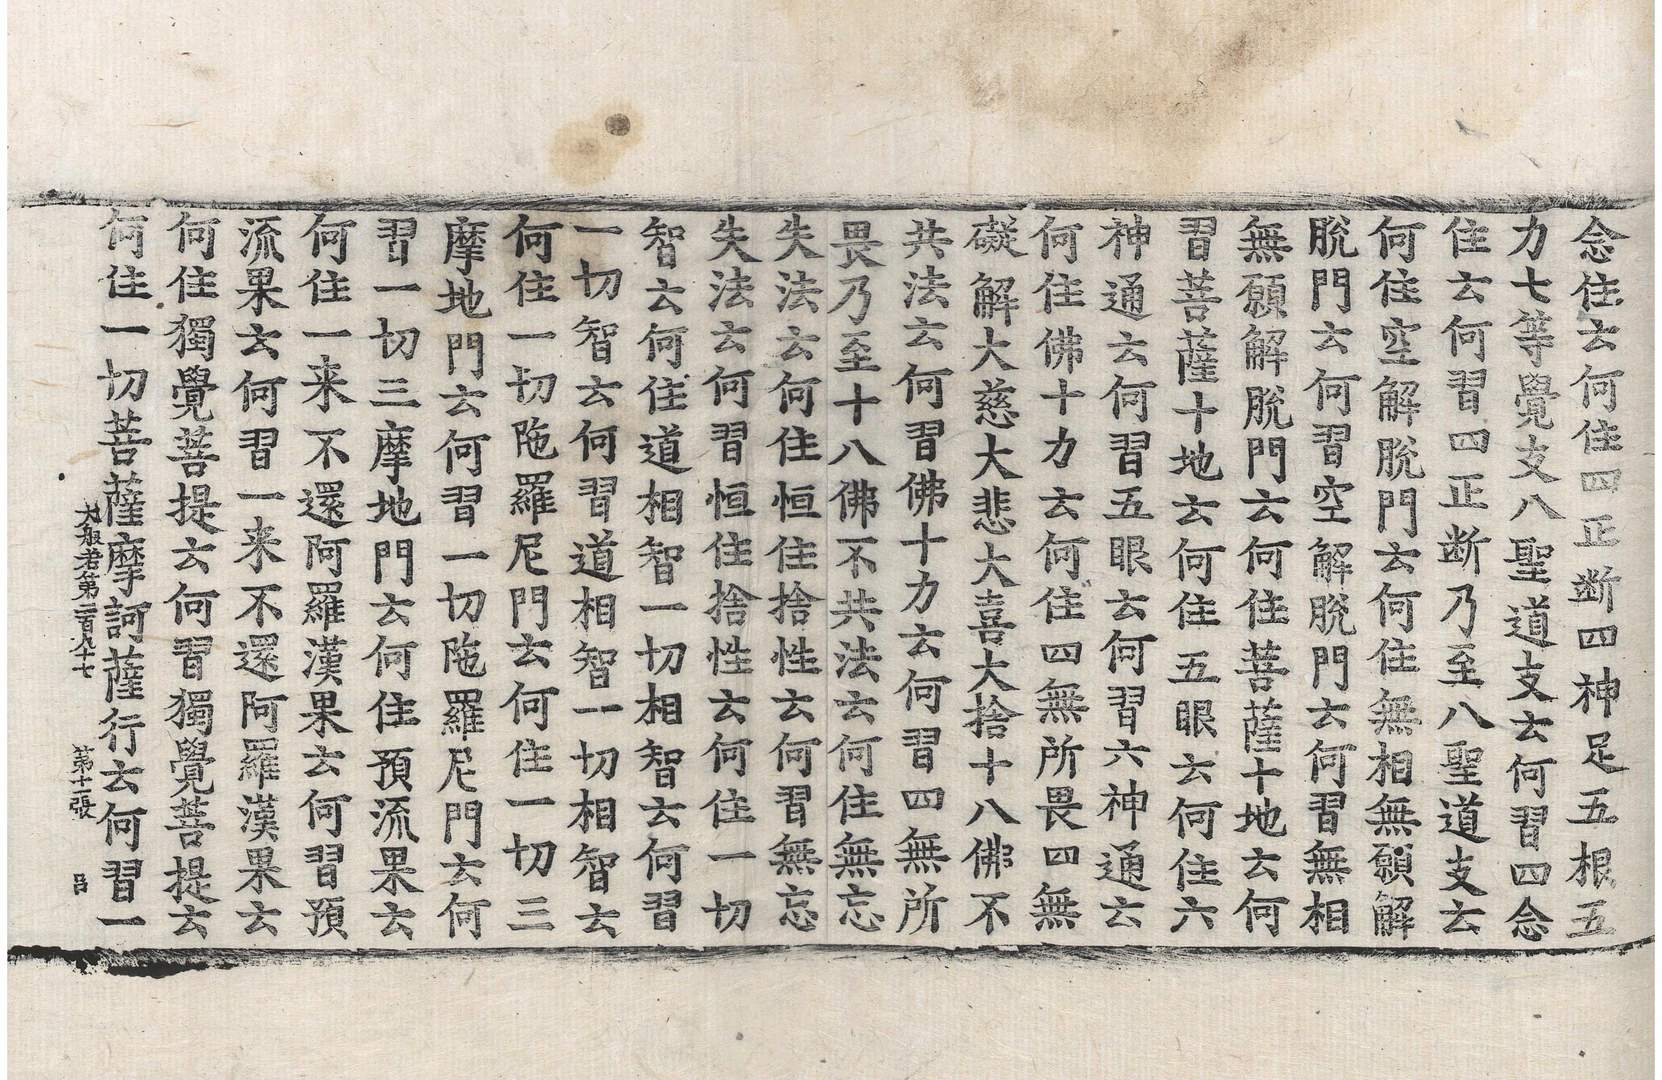 念住云何住四正断四神足五根五
力七等覺支八聖道支云何習四念
住云何習四正断乃至八聖道支云
何住空解脫門云何住無相無願解
脫門云何習空解脫門云何習無相
無願解脫門云何住菩薩十地云何
習菩薩十地云何住五眼云何住六
神通云何習五眼云何習六神通云
何住佛十力云何住四無所畏四無
礙解大慈大悲大喜大捨十八佛不
共法云何習佛十力云何習四無所
畏乃至十八佛不共法云何住無忘
失法云何住恒住捨性云何習無忘
失法云何習恒住捨性云何住一切
智云何住道相智一切相智云何習
一切智云何習道相智一切相智云
何住一切陁羅尼門云何住一切三
摩地門云何習一切陁羅尼門云何
習一切三摩地門云何住預流果云
何住一来不還阿羅漢果云何習預
流果云何習一来不還阿羅漢果云
何住獨覺菩提云何習獨覺菩提云
何住一切菩薩摩訶薩行云何習一
大般若第二百九十七 第十一張 呂